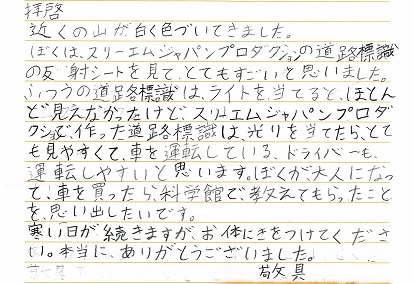 拝啓
近くの山が白く色づいてきました。
ぼくは、スリーエムジャパンプロダクションの道路標識
の反射シートを見て、とてもすごいと思いました。
ふつうの道路標識は、ライトを、当てると、ほとん
ど見えなかったけど、スリーエムジャパンプロダ
クションで、作った道路標識は、光りを当てたら、とて
も見やすくて、車を運転している、ドライバーも、
運転しやすいと思います。ぼくが大人になっ
て、車を買ったら、科学館で、教えてもらったこと
を、思い出したいです。
寒い日が続きますが、お体にきをつけてくださ
い。本当に、ありがとうございました。
敬具